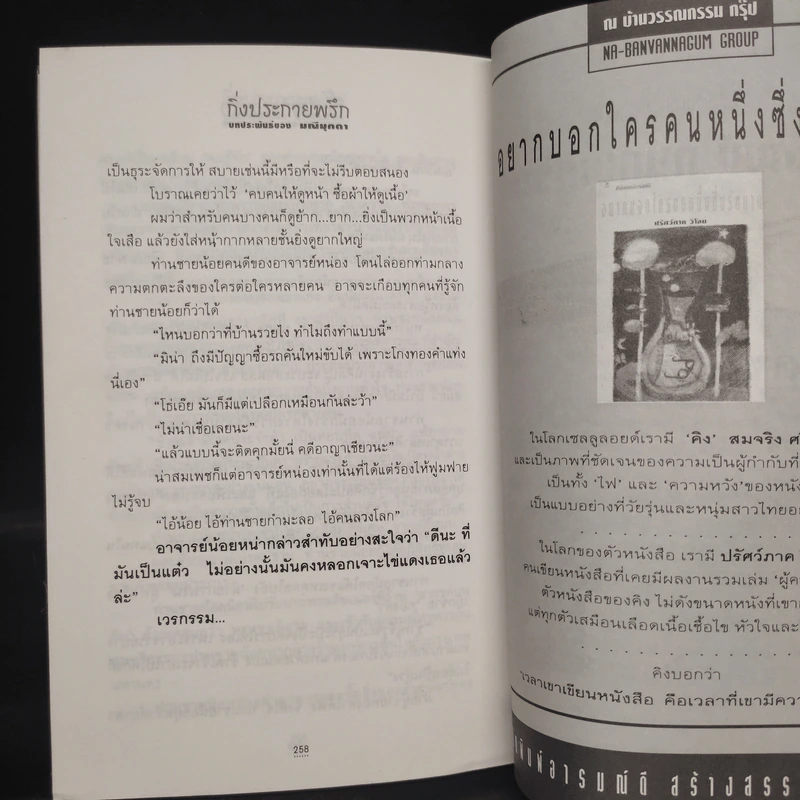 กิ่งประกายพรึก
บทประพันธ์ของ มณีมุกดา
เป็นธุระจัดการให้ สบายเช่นนี้มีหรือที่จะไม่รีบตอบสนอง
โบราณเคยว่าไว้ ‘คบคนให้ดูหน้า ซื้อผ้าให้ดูเนื้อ’
ผมว่าสำหรับคนบางคนก็ดูย้าก...ยาก...ยิ่งเป็นพวกหน้าเนื้อ
ใจเสือ แล้วยังใส่หน้ากากหลายชั้นยิ่งดูยากใหญ่
ท่านชายน้อยคนดีของอาจารย์หน่อง โดนไล่ออกท่ามกลาง
ความตกตะลึงของใครต่อใครหลายคน อาจจะเกือบทุกคนที่รู้จัก
ท่านชายน้อยก็ว่าได้
“ไหนบอกว่าที่บ้านรวยไง ทำไมถึงทำแบบนี้”
“มิน่า ถึงมีปัญญาซื้อรถคันใหม่ขับได้ เพราะโกงทองคำแท่ง
นี่เอง”
“โธ่เอ๊ย มันก็มีแต่เปลือกเหมือนกันล่ะว้า”
“ไม่น่าเชื่อเลยนะ”
“แล้วแบบนี้จะติดคุกมั้ยนี่ คดีอาญาเชียวนะ”
น่าสมเพชก็แต่อาจารย์หน่องเท่านั้นที่ได้แต่ร้องไห้ฟูมฟาย
ไม่รู้จบ
“ไอ้น้อย ไอ้ท่านชายกำมะลอ ไอ้คนลวงโลก”
อาจารย์น้อยหน่ากล่าวสำทับอย่างสะใจว่า “ดีนะ ที่
มันเป็นแต๋ว ไม่อย่างนั้นมันคงหลอกเจาะไข่แดงเธอแล้ว
ล่ะ”
เวรกรรม...
258
ณ บ้านวรรณกรรม กรุ๊ป
NA-BANVANNAGUM GROUP
อยากบอกใครคนหนึ่งซึ่ง
ปรัศว์ภาค วิโลย
ในโลกเซลลูลอยด์เรามี ‘คิง’ สมจริง ศรี
และเป็นภาพที่ชัดเจนของความเป็นผู้กำกับที่
เป็นทั้ง ‘ไฟ’ และ ‘ความหวัง’ของหนัง
เป็นแบบอย่างที่วัยรุ่นและหนุ่มสาวไทย
ในโลกของตัวหนังสือ เรามี ปรัศว์ภาค
คนเขียนหนังสือที่เคยมีผลงานรวมเล่ม
ตัวหนังสือของคิง ไม่ดังขนาดหนังที่เขา
แต่ทุกตัวเสมือนเลือดเนื้อเชื้อไข หัวใจและ
คิงบอกว่า
เวลาเขาเขียนหนังสือ คือเวลาที่เขามีความ
พิมพ์อารมณ์ดี สร้างสรร